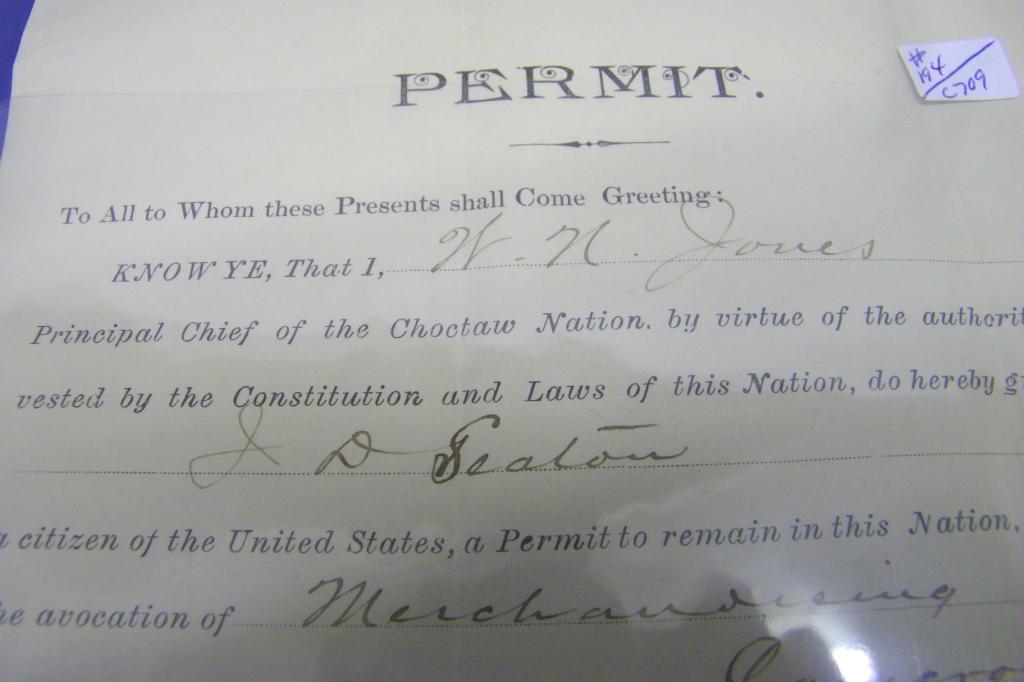 PERMIT.
#
194
C709
To All to Whom these Presents shall Come Greeting:
KNOW YE, That I, W. N. Jones
Principal Chief of the Choctaw Nation. by virtue of the authorit
vested by the Constitution and Laws of this Nation, do hereby g
J D Seaton
a citizen of the United States, a Permit to remain in this Nation,
he avocation of Merchandising